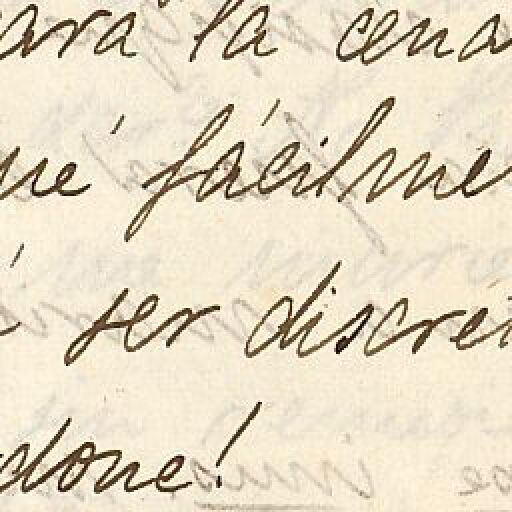 ara la cena
ué fácilme
ser discret
done!